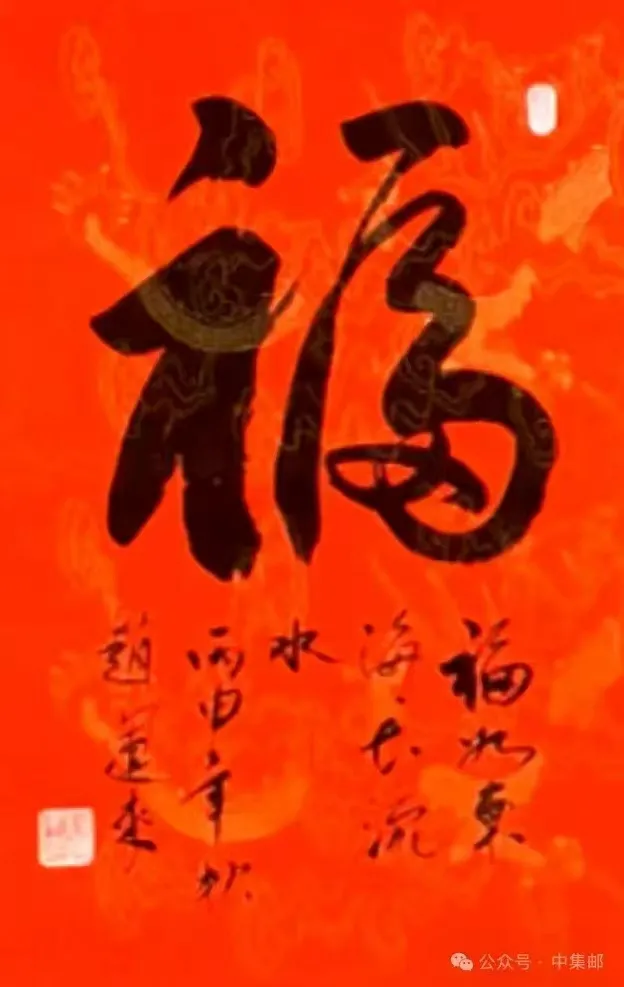 福
福如东
海长流
水
丙申年秋
赵
公众号·中集邮